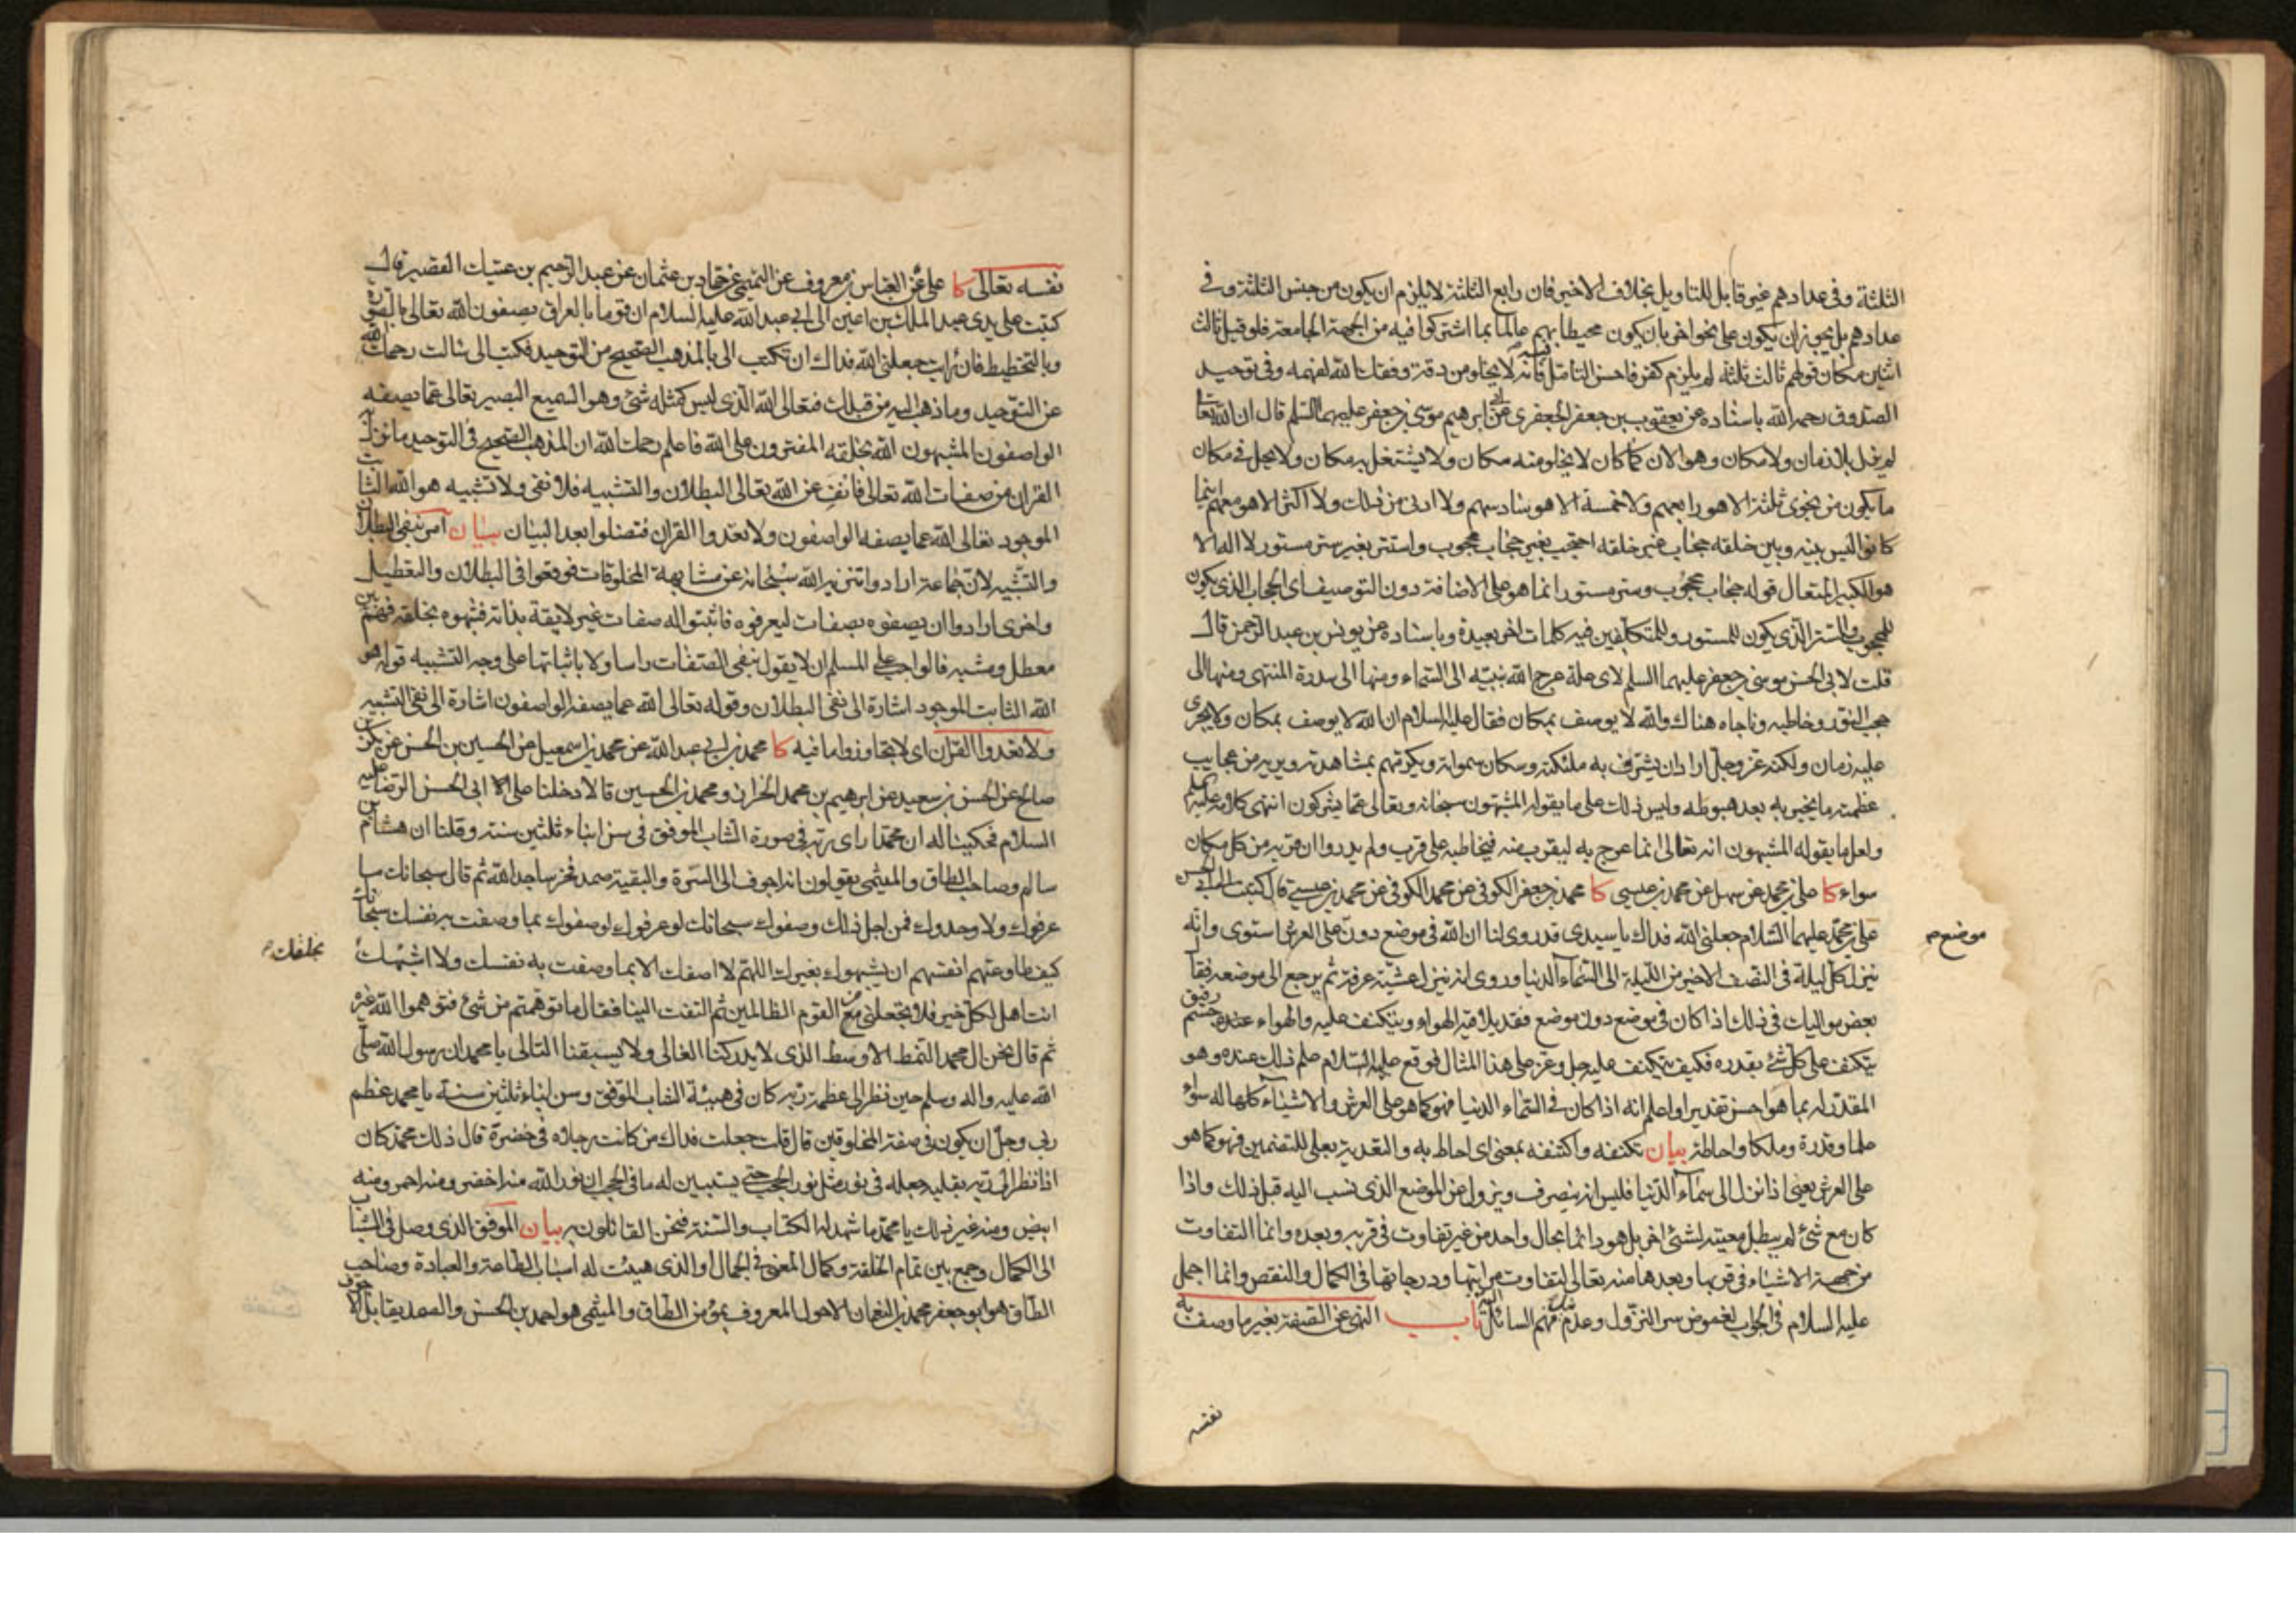 الثلثة وفى عدادهم غير قابل للتاويل بخلاف الاخير فان رابع الثلثة لا يلزم ان يكون من جنس الثلثة وفى
عدادهم بل يجوز ان يكون على نحو اخر بان يكون محيطا بهم عالما بما اشتركوا فيه من الجهة الجامعة فلو قيل ثالث
اثنين مكان قولهم ثالث ثلثة لم يلزم كفر فاحسن التامل فيه فانه لا يخلو من دقة وفقك الله لفهمه وفى توحيد
الصدوق رحمه الله باسناده عن يعقوب بن جعفر الجعفرى عن ابى ابرهيم موسى بن جعفر عليهما السلم قال ان الله تعا
لم يزل بلا زمان ولا مكان وهو الان كما كان لا يخلو منه مكان ولا يشتغل به مكان ولا يحل فى مكان
ما يكون من نجوى ثلثة الا هو رابعهم ولا خمسة الا هو سادسهم ولا ادنى من ذلك ولا اكثر الا هو معهم اينما
كانوا ليس بينه وبين خلقه حجاب غير خلقه احتجب بغير حجاب محجوب واستتر بغير ستر مستور لا اله الا
هو الكبير المتعال قوله حجاب محجوب وستر مستور انما هو على الاضافة دون التوصيف اى الحجاب الذى يكون
للمحجوب والستر الذى يكون للمستور وللمتكلفين فيه كلمات اخر بعيدة وباسناده عن يونس بن عبد الرحمن قال
قلت لابى الحسن موسى بن جعفر عليهما السلم لاى علة عرج الله بنبيه الى السماء ومنها الى سدرة المنتهى ومنها الى
حجب النور وخاطبه وناجاه هناك والله لا يوصف بمكان فقال عليه السلام ان الله لا يوصف بمكان ولا يجرى
عليه زمان ولكنه عز وجل اراد ان يشرف به ملئكته وسكان سمواته ويكرمهم بمشاهدته ويريه من عجايب
عظمته ما يخبر به بعد هبوطه وليس ذلك على ما يقوله المشبهون سبحانه وتعالى عما يشركون انتهى كلامه عليه السلم
ولعل ما يقوله المشبهون انه تعالى انما عرج به ليقرب منه فيخاطبه على قرب ولم يدروا ان قربه من كل مكان
سواء كا على بن محمد عن سهل عن محمد بن عيسى كا محمد بن جعفر الكوفى عن محمد الكوفى عن محمد بن عيسى قال كتبت الى ابى الحسن
على بن محمد عليهما السلام جعلنى الله فداك يا سيدى قد روى لنا ان الله فى موضع دون على العرش استوى وانه
موضع صح
ينزل كل ليلة فى النصف الاخير من الليلة الى السماء الدنيا وروى انه ينزل عشية عرفة ثم يرجع الى موضعه فقال
بعض مواليك فى ذلك اذا كان فى موضع دون موضع فقد يلاقيه الهواء ويتكنف عليه والهواء عنده جسم رقيق
يتكنف على كل شئ بقدره فكيف يتكنف عليه جل وعز على هذا المثال فوقع عليه السلام علم ذلك عنده وهو
المقدر له بما هو احسن تقديرا واعلم انه اذا كان فى السماء الدنيا فهو كما هو على العرش والاشياء كلها له سواء
علما وقدرة وملكا واحاطة بيان تكنفه واكتنفه بمعنى اى احاط به والتعدية بعلى للتضمين فهو كما هو
على العرش يعنى اذا نزل الى سماء الدنيا فليس انه ينصرف ويزول عن الموضع الذى نسب اليه قبل ذلك واذا
كان مع شئ لم يبطل معيته لشئ اخر بل هو دائما بحال واحد من غير تفاوت فى قربه وبعده وانما التفاوت
من جهة الاشياء فى قربها وبعدها منه تعالى لتفاوت مراتبها ودرجاتها فى الكمال والنقص وانما اجمل
عليه السلام فى الجواب لغموض سر النزول وعدم فهم السائل باب النهى عن الصفة بغير ما وصف به
نفسه
نفسه تعالى كا على عن العباس بن معروف عن التميمى عن حماد بن عثمان عن عبد الرحيم بن عتيك القصير قال
كتبت على يدى عبد الملك بن اعين الى ابى عبد الله عليه السلام ان قوما بالعراق يصفون الله تعالى بالصورة
وبالتخطيط فان رايت جعلنى الله فداك ان تكتب الى بالمذهب الصحيح من التوحيد فكتب الى سالت رحمك الله
عن التوحيد وما ذهب اليه من قبلك فتعالى الله الذى ليس كمثله شئ وهو السميع البصير تعالى عما يصفه
الواصفون المشبهون الله بخلقه المفترون على الله فاعلم رحمك الله ان المذهب الصحيح فى التوحيد ما نزل به
القران من صفات الله تعالى فانف عن الله تعالى البطلان والتشبيه فلا نفى ولا تشبيه هو الله الثابت
الموجود تعالى الله عما يصفه الواصفون ولا تعدوا القران فتضلوا بعد البيان بيان امر بنفى البطلان
والتشبيه لان جماعة ارادوا تنزيه الله سبحانه عن مشابهة المخلوقات فوقعوا فى البطلان والتعطيل
واخرى ارادوا ان يصفوه بصفات ليعرفوه فاثبتوا له صفات غير لايقة بذاته فشبهوه بخلقه فهم بين
معطل ومشبه فالواجب على المسلم ان لا يقول بنفى الصفات راسا ولا باثباتها على وجه التشبيه قوله هو
الله الثابت الموجود اشارة الى نفى البطلان وقوله تعالى الله عما يصفه الواصفون اشارة الى نفى التشبيه
ولا تعدوا القران اى لا تجاوزوا ما فيه كا محمد بن ابى عبد الله عن محمد بن اسمعيل عن الحسين بن الحسن عن بكر بن
صالح عن الحسن بن سعيد عن ابرهيم بن محمد الخزاز ومحمد بن الحسين قالا دخلنا على ابى الحسن الرضا عليه
السلام فحكينا له ان محمدا راى ربه فى صورة الشاب الموفق فى سن ابناء ثلثين سنة وقلنا ان هشام بن
سالم وصاحب الطاق والميثمى يقولون انه اجوف الى السرة والبقية صمد فخر ساجدا لله ثم قال سبحانك ما
عرفوك ولا وحدوك فمن اجل ذلك وصفوك سبحانك لو عرفوك لوصفوك بما وصفت به نفسك سبحانك
كيف طاوعتهم انفسهم ان يشبهوك بغيرك اللهم لا اصفك الا بما وصفت به نفسك ولا اشبهك
بخلقك
انت اهل لكل خير فلا تجعلنى من القوم الظالمين ثم التفت الينا فقال ما توهمتم من شئ فتوهموا الله غيره
ثم قال نحن ال محمد النمط الاوسط الذى لا يدركنا الغالى ولا يسبقنا التالى يا محمد ان رسول الله صلى
الله عليه واله وسلم حين نظر الى عظمة ربه كان فى هيئة الشاب الموفق وسن ابناء ثلثين سنة يا محمد عظم
ربى وجل ان يكون فى صفة المخلوقين قال قلت جعلت فداك من كانت رجلاه فى خضرة قال ذلك محمد كان
اذا نظر الى ربه بقلبه جعله فى نور مثل نور الحجب حتى يستبين له ما فى الحجب ان نور الله منه اخضر ومنه احمر ومنه
ابيض ومنه غير ذلك يا محمد ما شهد له الكتاب والسنة فنحن القائلون به بيان الموفق الذى وصل فى الشباب
الى الكمال وجمع بين تمام الخلقة وكمال المعنى فى الجمال او الذى هيئت له اسباب الطاعة والعبادة وصاحب
الطاق هو ابو جعفر محمد بن النعمان الاحول المعروف بمؤمن الطاق والميثمى هو احمد بن الحسن والصمد يقابل الاجوف